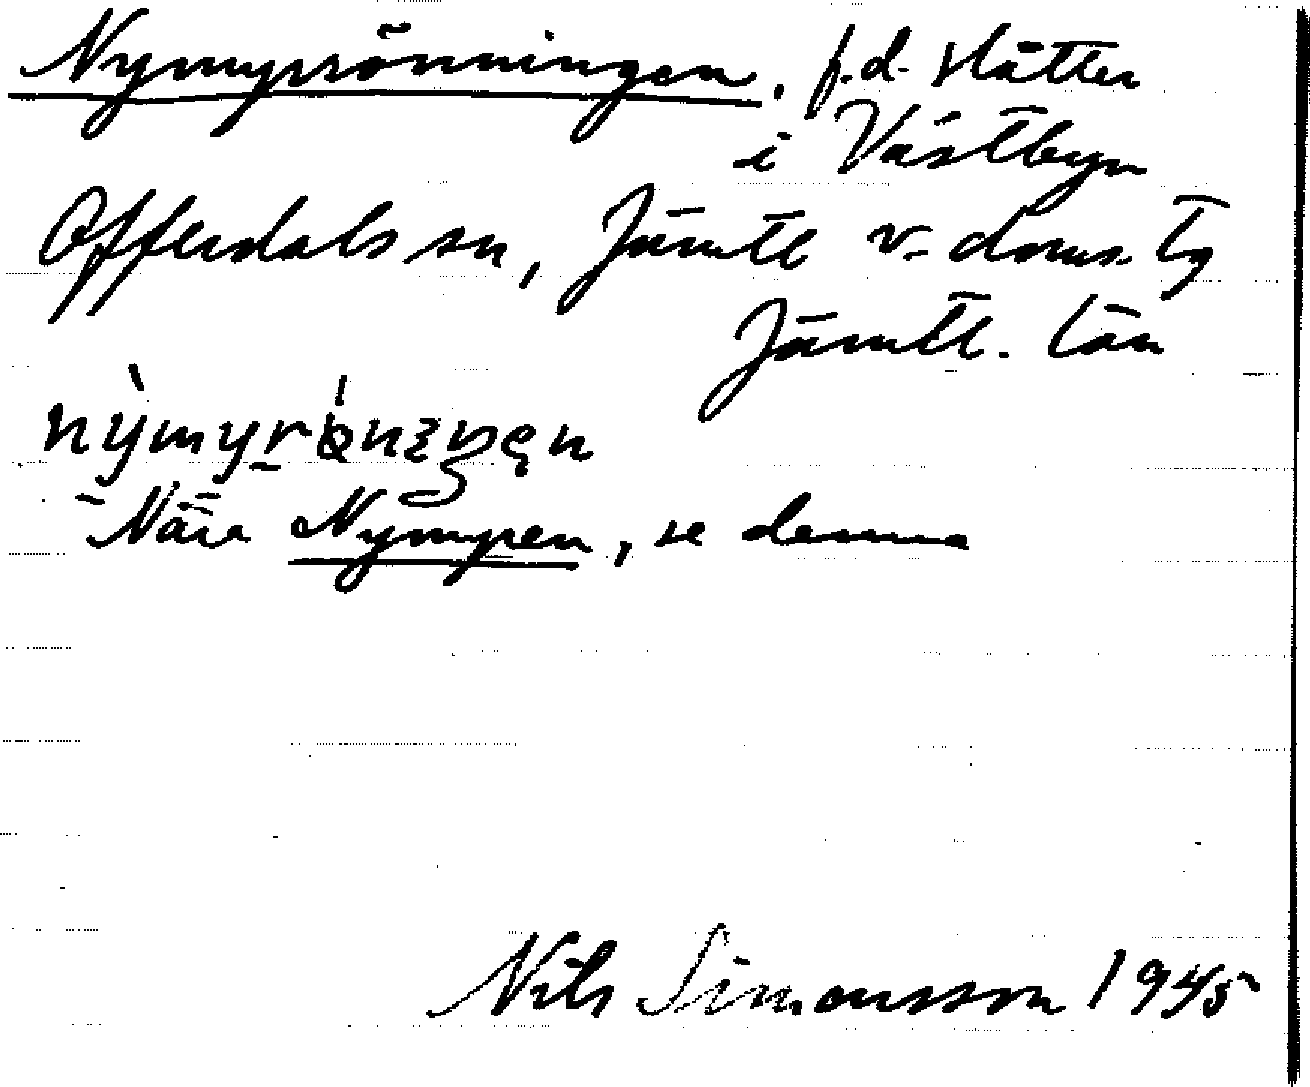 Nymyrrönningen, f.d. slåtter
i Västbyn
Offerdals sn, Jämtl v. doms. tg
Jämtl. län
Nära Nymyren, se denna
Nils Simonsson 1945